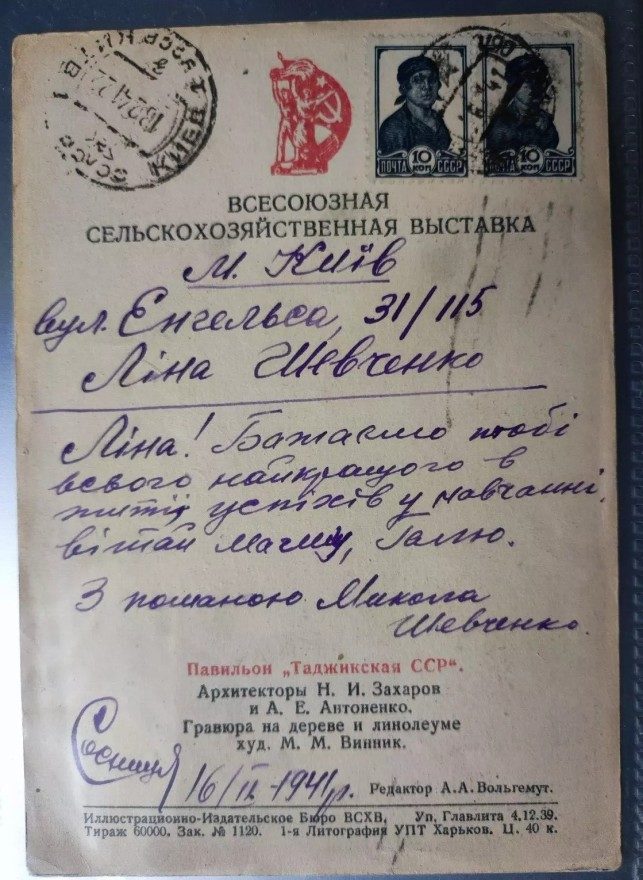 КИЕВ
ПОЧТА 10 КОП СССР
ПОЧТА 10 КОП СССР
ВСЕСОЮЗНАЯ
СЕЛЬСКОХОЗЯЙСТВЕННАЯ ВЫСТАВКА
м. Київ
вул. Енгельса, 31/115
Ліна Шевченко
Ліна! Бажаємо тобі
всього найкращого в
житті успіхів у навчанні.
вітай маму, Галю.
З пошаною Микола
Шевченко.
Павильон „Таджикская ССР“.
Архитекторы Н. И. Захаров
и А. Е. Антоненко.
Гравюра на дереве и линолеуме
худ. М. М. Винник.
Сосниця
16/II-1941р.
Редактор А. А. Вольгемут.
Иллюстрационно-Издательское Бюро ВСХВ. Уп. Главлита 4.12.39.
Тираж 60000. Зак. № 1120. 1-я Литография УПТ Харьков. Ц. 40 к.